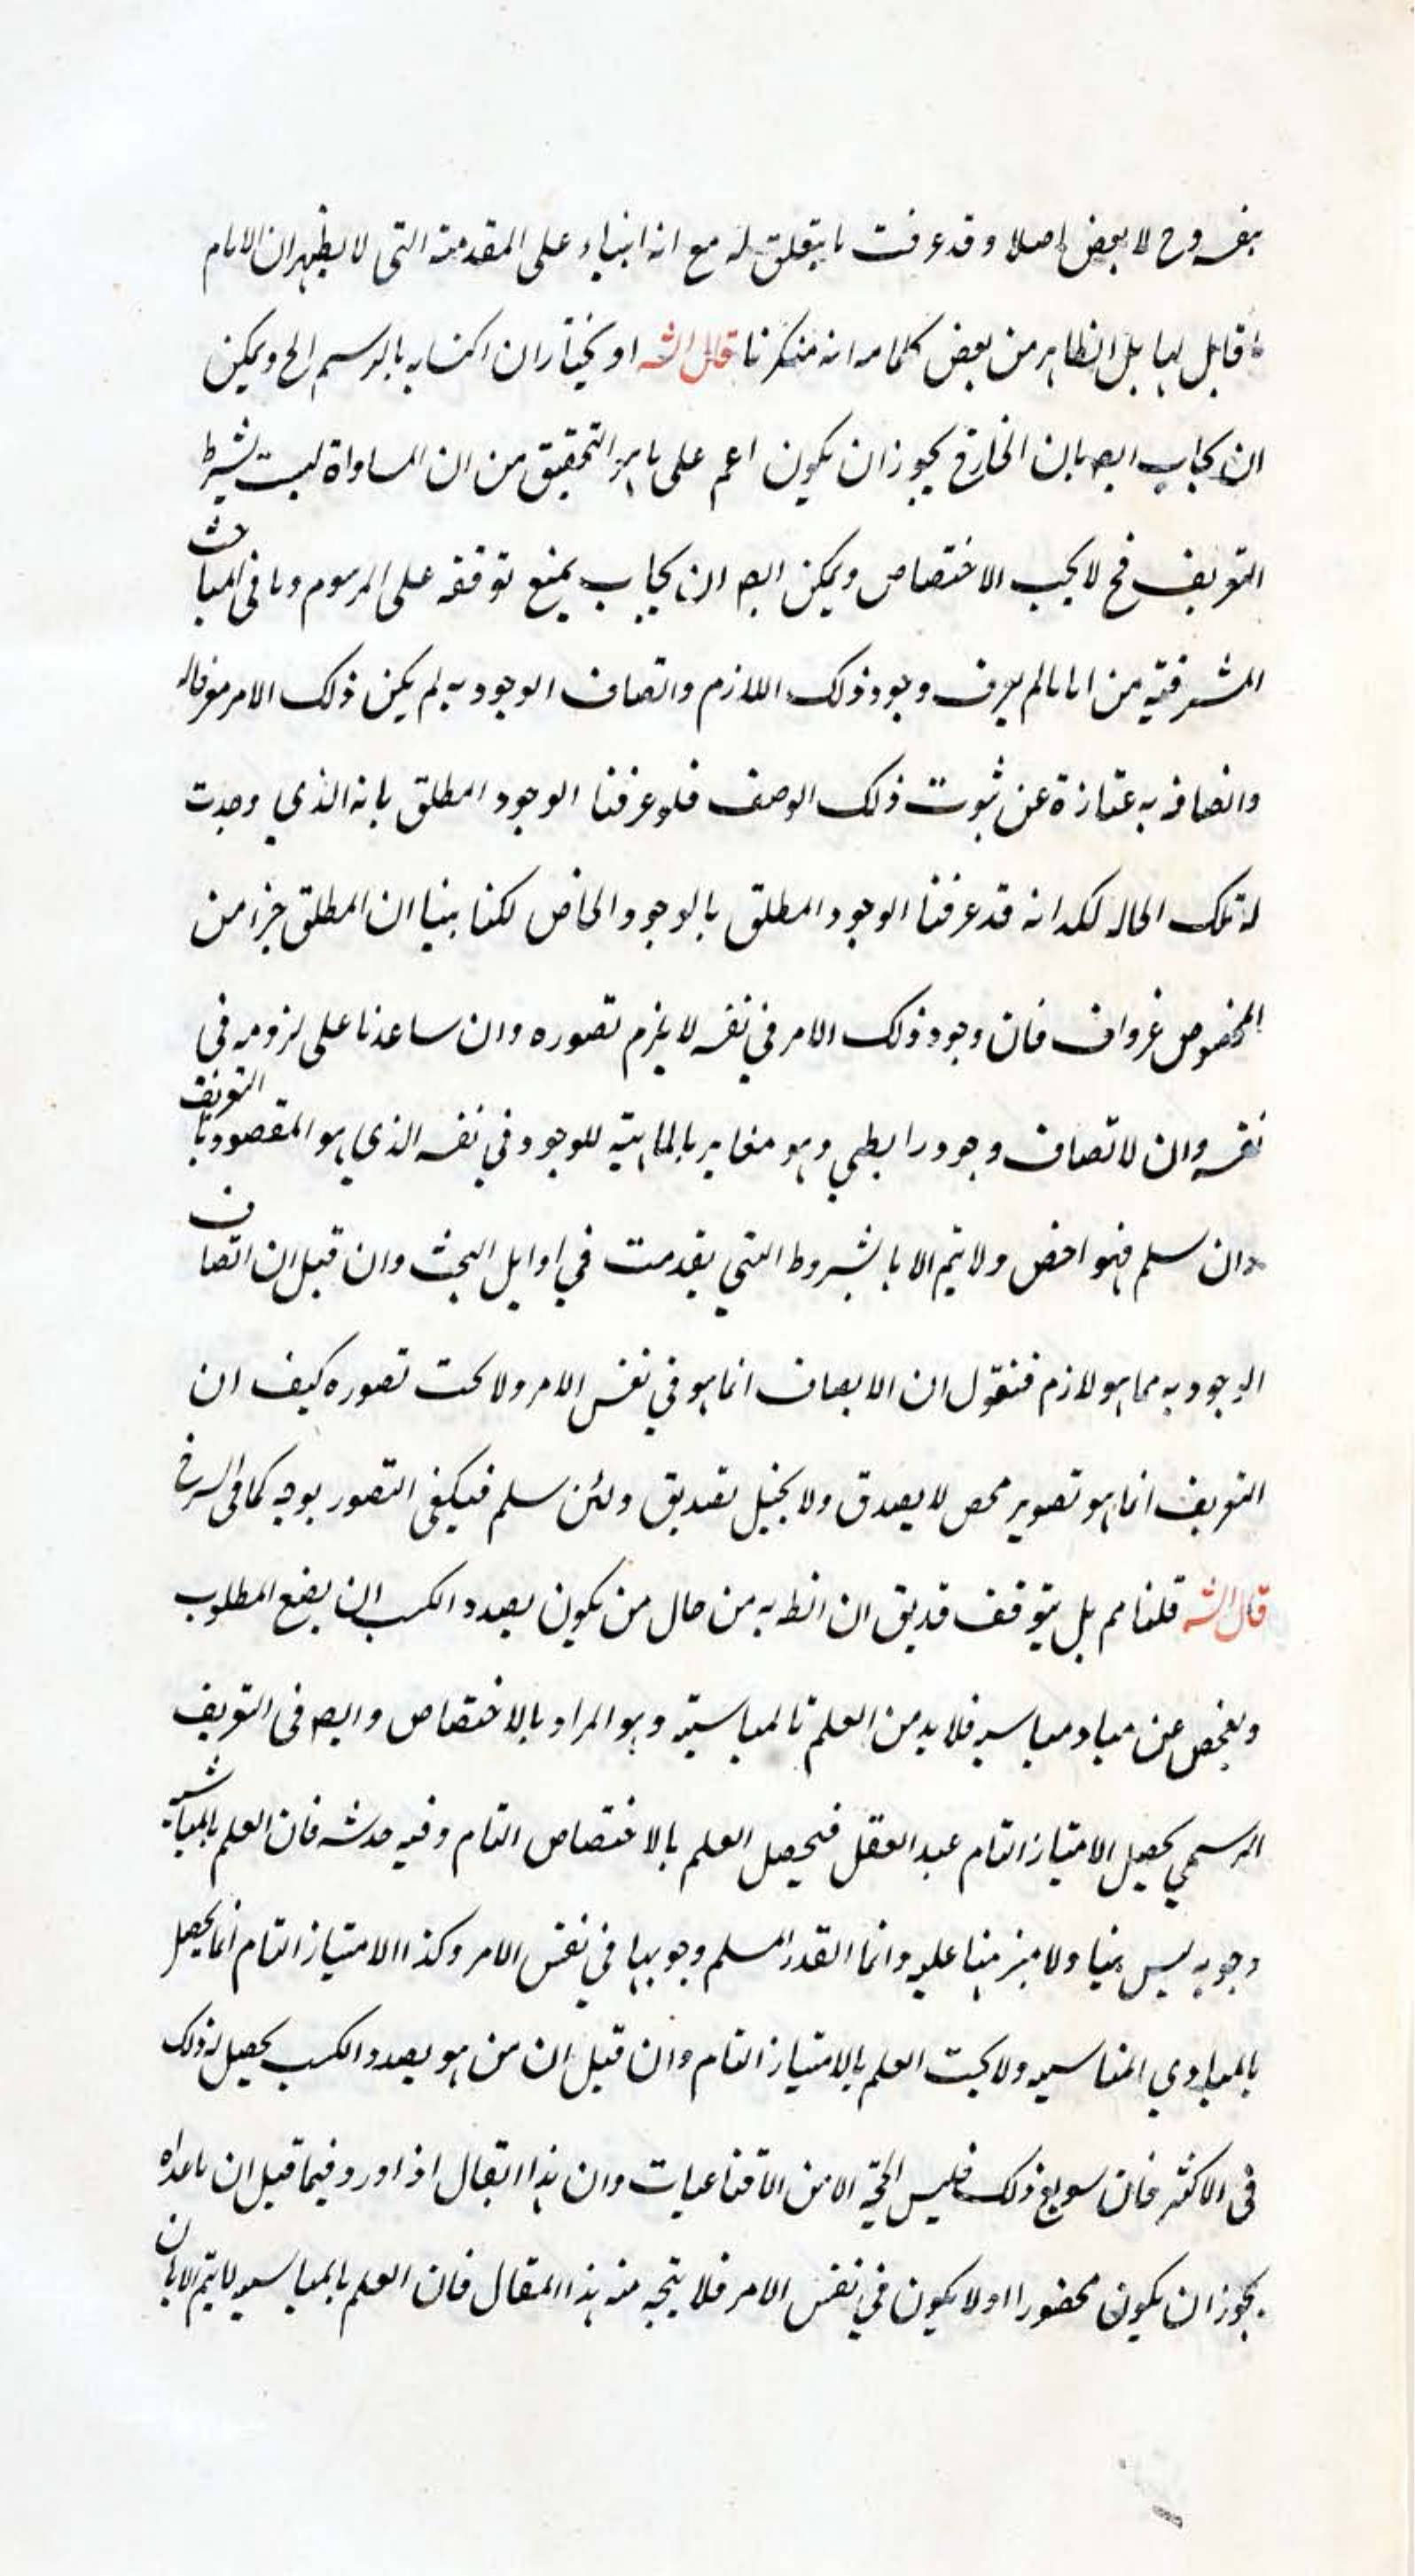 بنفسه وح لا بعض اصلا وقد عرفت ما يتعلق له مع انه ابتناء على المقدمة التى لا يظهر ان الامام
قابل لها بل الظاهر من بعض كلماته انه منكرنا قال الشـ او يختار ان اكتسابه بالرسم الخ ويمكن
ان يجاب ايضـ بان الخارج يجوز ان يكون اعم على ما هو التحقيق من ان المساواة ليست بشرط
التعريف فح لا يجب الاختصاص ويمكن ايضـ ان يجاب بمنع توقفه على المرسوم وما فى المباحث
المشرقية من انا ما لم يعرف وجود ذلك اللازم واتصاف الوجود به لم يكن ذلك الامر معرفا له
واتصافه به عبارة عن ثبوت ذلك الوصف فلو عرفنا الوجود المطلق بانه الذي وجدت
له تلك الحاله لكد انه قد عرفنا الوجود المطلق بالوجود الخاص لكنا بينا ان المطلق جزء من
المخصوص غرواف فان وجود ذلك الامر في نفسه لا يلزم تصوره وان ساعدنا على لزومه في
نفسه وان لاتصاف وجود رابطي وهو مغاير بالماهية للوجود في نفسه الذي هو المقصود بالتعريف
وان سلم فهو اخص ولا يتم الا بالشروط التي تقدمت في اوايل البحث وان قيل ان اتصاف
الوجود به مما هو لازم فنقول ان الاتصاف انما هو في نفس الامر ولا يجب تصوره كيف ان
التعريف انما هو تصوير محض لا يصدق ولا يخيل تصديق ولئن سلم فيكفي التصور بوجه كما فى الشرح
قال الشـ قلنا مم بل يتوقف قد يق ان الظـ به من حال من يكون بصدد الكسب ان يضع المطلوب
ويفحص عن مباد مناسبه فلا بد من العلم بالمناسبة وهو المراد بالاختصاص وايضـ فى التعريف
الرسمي يحصل الامتياز التام عند العقل فيحصل العلم بالاختصاص التام وفيه خدشه فان العلم بالمناسبة
وجوبه ليس بينا ولا مبرهنا عليه وانما القدر المسلم وجوبها في نفس الامر وكذا الامتياز التام انما يحصل
بالمبادي المناسبه ولا يجب العلم بالامتياز التام وان قيل ان من هو بصدد الكسب يحصل له ذلك
فى الاكثر فان سويع ذلك فليس الحجة الا من الاقناعيات وان هذا ايقال اذ اورد فيما قيل ان ما عداه
يجوز ان يكون محضورا او لا يكون في نفس الامر فلا يتجه منه هذا المقال فان العلم بالمناسبه لا يتم الا بان